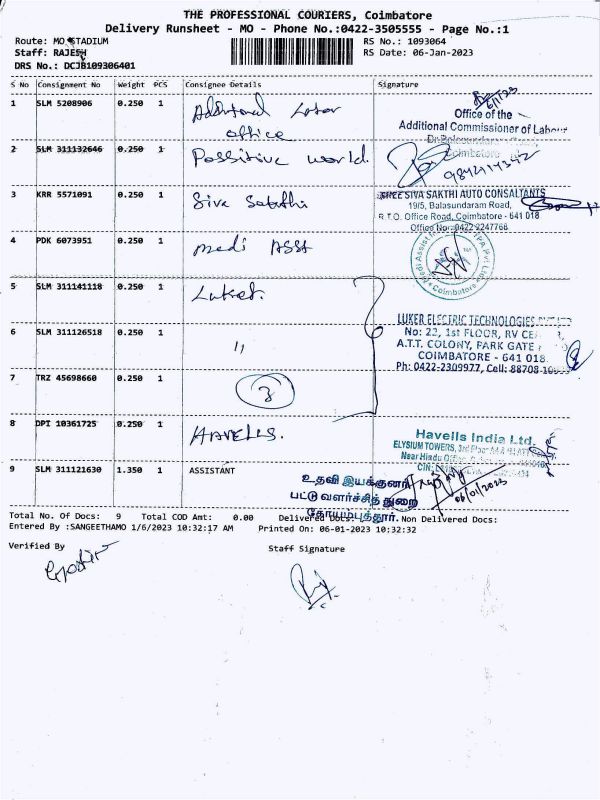 THE PROFESSIONAL COURIERS, Coimbatore
Delivery Runsheet - MO - Phone No.:0422-3505555 - Page No.:1
Route: MO STADIUM
RS No.: 1093064
Staff: RAJESH
RS Date: 06-Jan-2023
DRS No.: DCJB109306401
S No Consignment No Weight PCS Consignee Details Signature
1 SLM 5208906 0.250 1 Additional Labor
office
6/1/23
Office of the
Additional Commissioner of Labour
Coimbatore
2 SLM 311132646 0.250 1 Possitive world.
3 KRR 5571091 0.250 1 Siva Sakthi
SHREE SIVA SAKTHI AUTO CONSALTANTS
19/5, Balasundaram Road,
R.T.O. Office Road, Coimbatore - 641 018
Office No: 0422 2247768
4 PDK 6073951 0.250 1 Medi ASSt
Coimbatore
5 SLM 311141118 0.250 1 Luker.
6 SLM 311126518 0.250 1 "
LUKER ELECTRIC TECHNOLOGIES
No: 22, 1st FLOOR, RV
A.T.T. COLONY, PARK GATE
COIMBATORE - 641 018.
Ph: 0422-2309977, Cell: 88708
7 TRZ 45698660 0.250 1 3
8 DPI 10361725 0.250 1 HAVELLS.
Havells India Ltd.
ELYSIUM TOWERS, 3rd Floor
Near Hindu
CIN:
9 SLM 311121630 1.350 1 ASSISTANT
06/01/2023
உதவி இயக்குனர்
பட்டு வளர்ச்சித் துறை
கோயம்புத்தூர்.
Total No. Of Docs: 9 Total COD Amt: 0.00 Delivered Docs: Non Delivered Docs:
Entered By :SANGEETHAMO 1/6/2023 10:32:17 AM Printed On: 06-01-2023 10:32:32
Verified By
Staff Signature